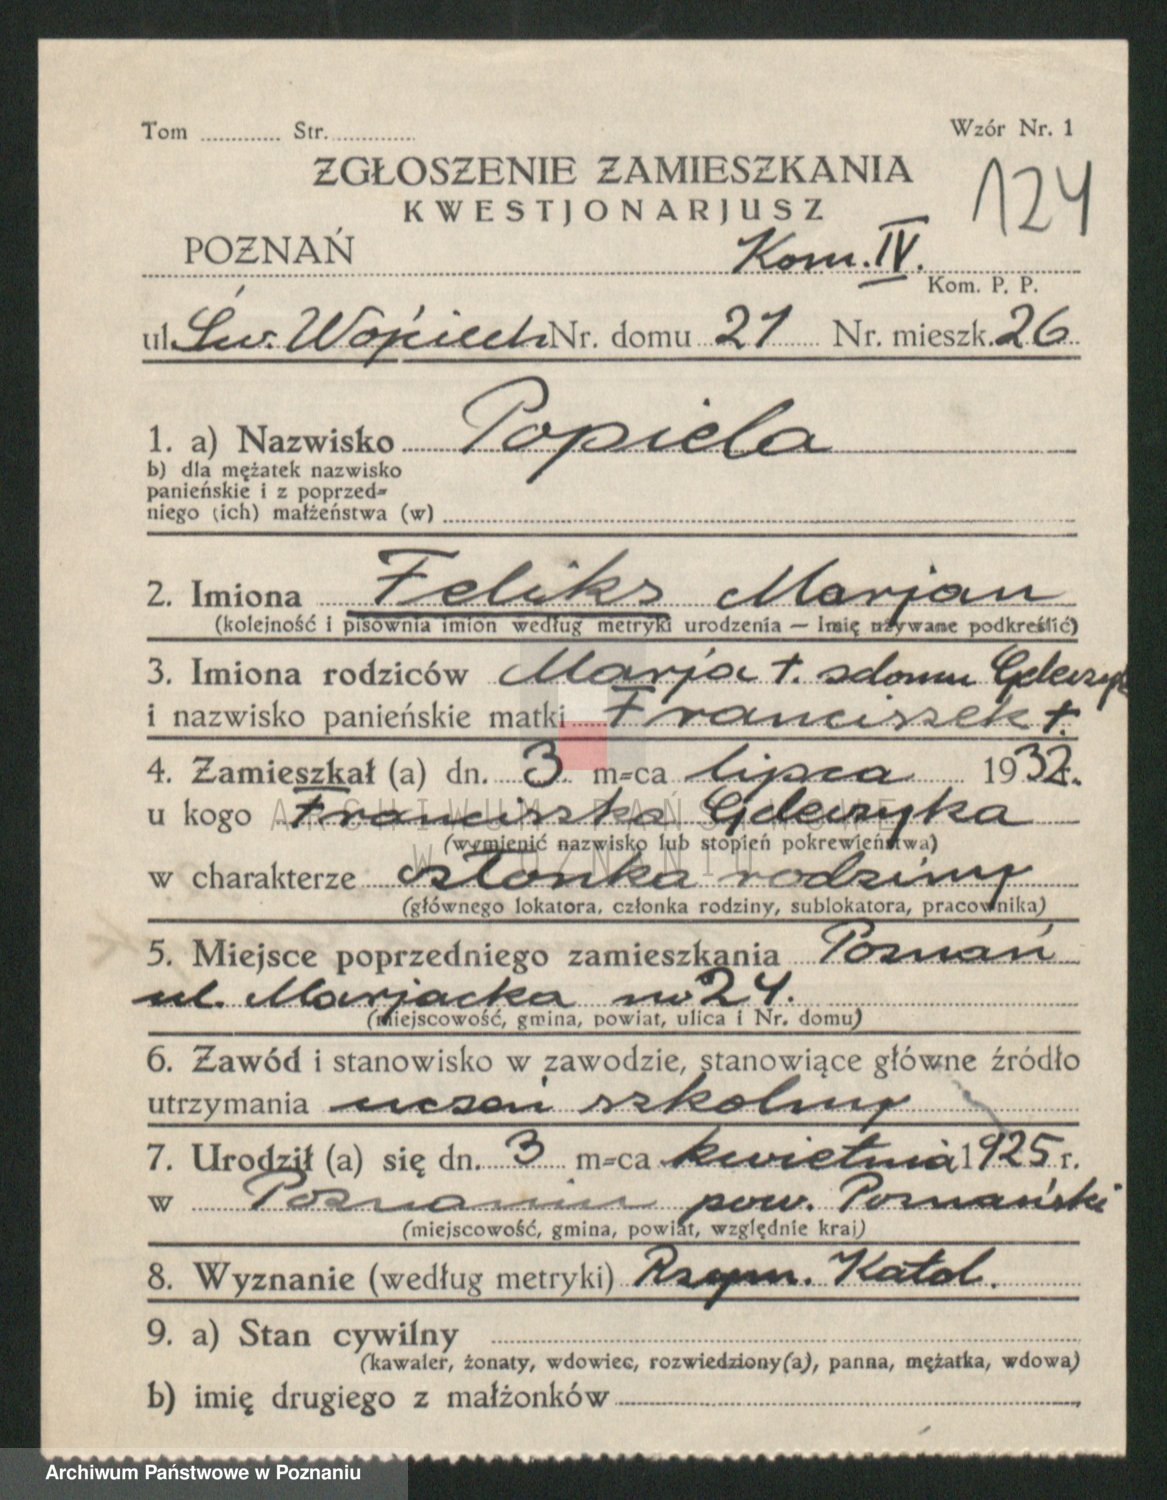 Tom ............ Str. ............ Wzór Nr. 1
ZGŁOSZENIE ZAMIESZKANIA
KWESTJONARJUSZ
124
POZNAŃ Kom. IV.
Kom. P. P.
ul. Św. Wojciech Nr. domu 21 Nr. mieszk. 26
1. a) Nazwisko Popiela
b) dla mężatek nazwisko
panieńskie i z poprzed=
niego (ich) małżeństwa (w)
2. Imiona Feliks Marjan
(kolejność i pisownia imion według metryki urodzenia — Imię używane podkreślić)
3. Imiona rodziców Marja †. zdomu Gdeczyk
i nazwisko panieńskie matki Franciszek †.
4. Zamieszkał (a) dn. 3 m=ca lipca 1932 r.
u kogo Franciszka Gdeczyka
(wymienić nazwisko lub stopień pokrewieństwa)
w charakterze członka rodziny
(głównego lokatora, członka rodziny, sublokatora, pracownika)
5. Miejsce poprzedniego zamieszkania Poznań
ul. Marjacka nr 24.
(miejscowość, gmina, powiat, ulica i Nr. domu)
6. Zawód i stanowisko w zawodzie, stanowiące główne źródło
utrzymania uczeń szkolny
7. Urodził (a) się dn. 3 m=ca kwietnia 1925 r.
w Poznaniu pow. Poznański
(miejscowość, gmina, powiat, względnie kraj)
8. Wyznanie (według metryki) Rzym. Katol.
9. a) Stan cywilny
(kawaler, żonaty, wdowiec, rozwiedziony(a), panna, mężatka, wdowa)
b) imię drugiego z małżonków
ARCHIWUM PAŃSTWOWE
W POZNANIU
Archiwum Państwowe w Poznaniu